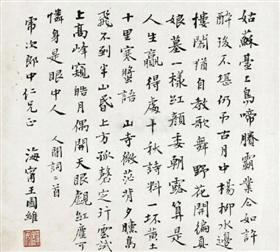 姑蘇臺上烏啼曙賸霸業今如許
醉後不堪仍弔古月中楊柳水邊
樓閣猶自教歌舞野花開徧真
娘墓一樣紅顏委朝露算是
人生贏得處千秋詩料一抔黃土
十里寒螿語 山寺微茫背夕曛鳥
飛不到半山昏上方孤磬定行雲試
上高峰窺皓月偶開天眼覷紅塵可
憐身是眼中人 人間詞二首
次郎中仁兄正
海甯王國維